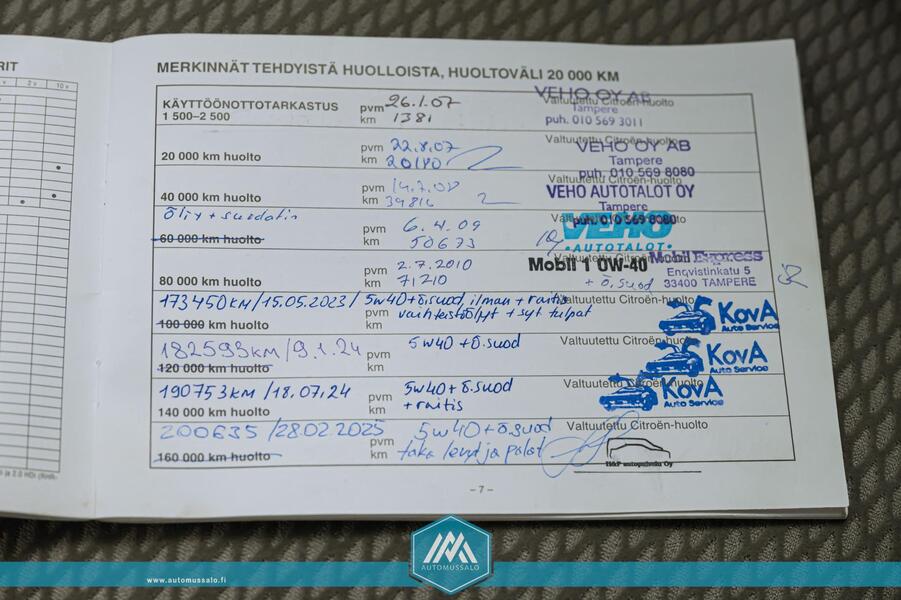 RIT
MERKINNÄT TEHDYISTÄ HUOLLOISTA, HUOLTOVÄLI 20 000 KM
KÄYTTÖÖNOTTOTARKASTUS pvm 26.1.07 VEHO OY AB
Valtuutettu Citroën-huolto
1 500–2 500 km 1381 Tampere
puh. 010 569 3011
20 000 km huolto pvm 22.8.07 Valtuutettu Citroën-huolto
km 20140 VEHO OY AB
Tampere
puh. 010 569 8080
40 000 km huolto pvm Valtuutettu Citroën-huolto
km 39816 VEHO AUTOTALOT OY
Tampere
puh. 010 569 8080
60 000 km huolto pvm 6.4.09 Valtuutettu Citroën-huolto
km 50673 VEHO
•AUTOTALOT•
80 000 km huolto pvm 2.7.2010 Valtuutettu Citroën-huolto
km 71210 Mobil 1 0W-40 Mobil Express
+ ö.suod Enqvistinkatu 5
33400 TAMPERE
173450KM/15.05.2023/ 5w40+ö.suod, ilman + raitis Valtuutettu Citroën-huolto
100 000 km huolto pvm vaihteistoöljyt + syt tulpat
km KovA
Auto Service
182593KM/9.1.24 pvm 5w40 + ö.suod Valtuutettu Citroën-huolto
120 000 km huolto km KovA
Auto Service
190753KM/18.07.24 pvm 5w40 + ö.suod Valtuutettu Citroën-huolto
140 000 km huolto km + raitis KovA
Auto Service
200635/28.02.2025 pvm 5w40+ö.suod Valtuutettu Citroën-huolto
160 000 km huolto km taka levyt ja palat
H&P autopalvelu Oy
– 7 –
AUTOMUSSALO
www.automussalo.fi